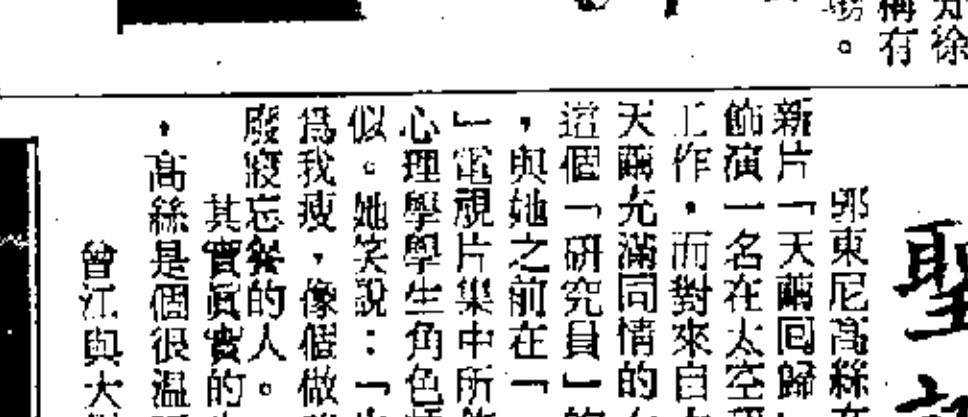 知徐
稱有
場。
聖
郭東尼高絲在
新片「天繭回歸」
飾演一名在太空研
工作,而對來自太
天繭充滿同情的
這個「研究員」的
,與她之前在「
」電視片集中所飾
心理學學生角色
似。她笑說:「
為我瘦,像個做
廢寢忘餐的人。
其實真實的
,高絲是個很溫
曾江與大